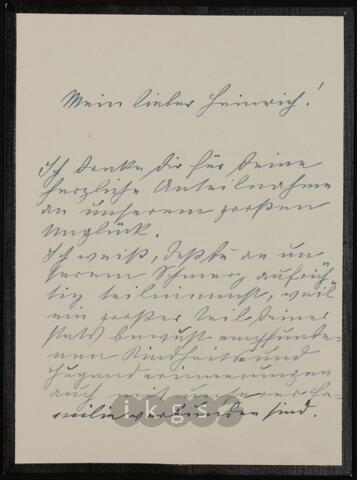 Mein lieber Heinrich!
Ich danke dir für Deine
herzliche Anteilnahme
an unserem großen
Unglück.
Ich weiß, daß Du an un-
serem Schmerz aufrich-
tig teilnimmst, weil
ein großer Teil Deiner
stets bewußt empfunde-
nen Kindheits- und
Jugenderinnerungen
auch mit unserer Fa-
milie verbunden sind.
ikgs